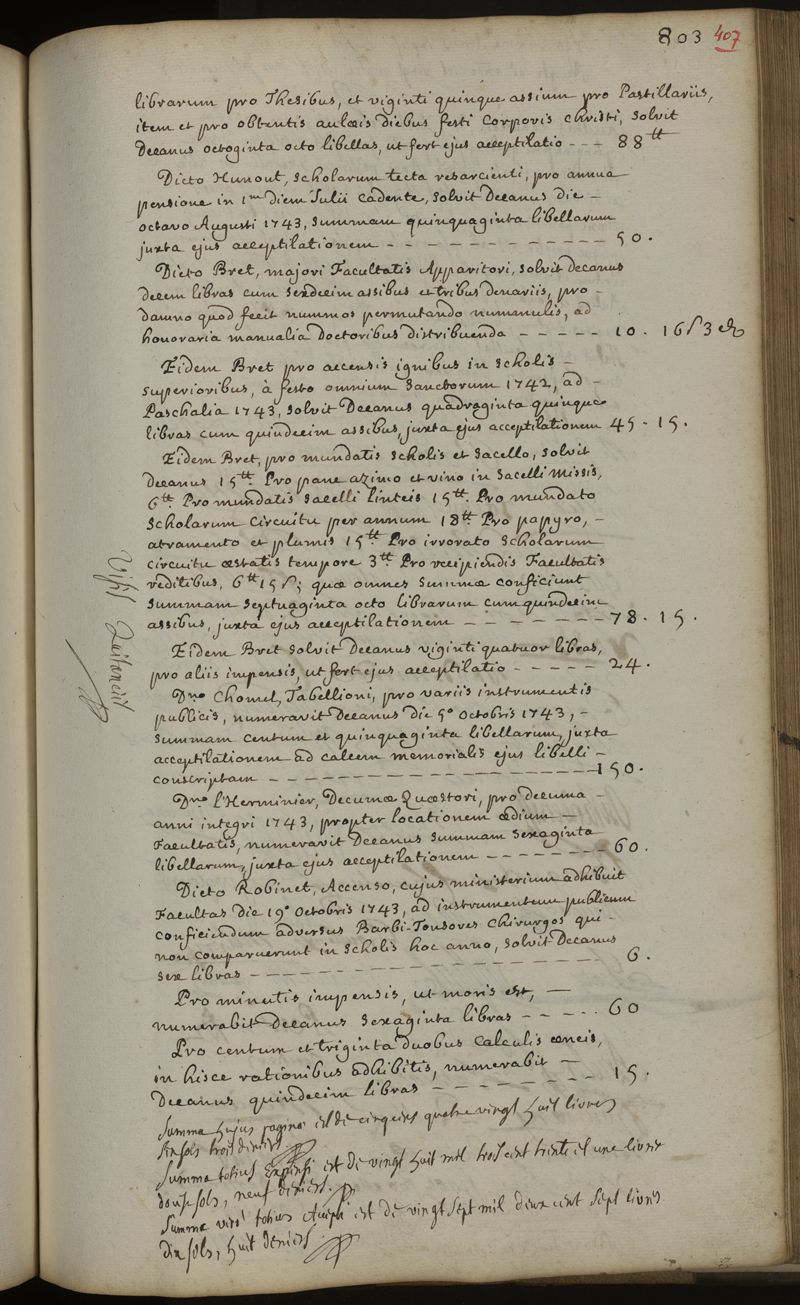 803 407
librarum pro Thesibus, et viginti quinque assium pro Pastillariis,
item et pro obtentis aulæis diebus festi Corporis Christi, solvit
Decanus octoginta octo libellas, ut fert ejus acceptilatio - - - 88tt
Dicto Hunout, Scholarum tecta resarcienti, pro annua
pensione in 1m diem Julii cadente, solvit Decanus die -
octavo Augusti 1743, summam quinquaginta libellarum
juxta ejus acceptilationem - - - - - - - - - - 50.
Dicto Bret, majori Facultatis Apparitori, solvit Decanus
decem libras cum sexdecim assibus et tribus denariis, pro -
damno quod fecit nummos permutando nummulis, ad
honoraria manualia Doctoribus distribuenda - - - - - 10. 16 s 3 d
Eidem Bret pro accensis ignibus in Scholis -
superioribus, à festo omnium Sanctorum 1742, ad -
Paschalia 1743, solvit Decanus quadraginta quinque
libras cum quindecim assibus, juxta ejus acceptilationem 45 - 15.
Eidem Bret, pro mundatis scholis et sacello, solvit
Decanus 15tt. Pro pane azimo et vino in Sacelli Missis,
6tt. Pro mundatis sacelli linteis 15tt. Pro mundato
Scholarum circuitu per annum 18tt Pro papyro, -
atramento et plumis 15tt Pro irrorato Scholarum
circuitu æstatis tempore 3tt Pro recipiendis Facultatis
reditibus, 6tt 15 s; quæ omnes summæ conficiunt
summam septuaginta octo librarum cum quindecim
assibus, juxta ejus acceptilationem - - - - - - - 78. 15.
Eidem Bret solvit Decanus viginti quatuor libras,
pro aliis impensis, ut fert ejus acceptilatio - - - - - 24.
Dno Chomel, Tabellioni, pro variis instrumentis
publicis, numeravit Decanus die 5o Octobris 1743, -
summam centum et quinquaginta libellarum, juxta
acceptilationem ad calcem memorialis ejus libelli -
conscriptam - - - - - - - - - - - - - - 150.
Dno l'Herminier, Decumæ Quæstori, pro decuma -
anni integri 1743, propter locationem ædium -
Facultatis, numeravit Decanus summam sexaginta
libellarum, juxta ejus acceptilationem - - - - - - - 60.
Dicto Robinet, Accenso, cujus ministerium adhibuit
Facultas die 19o Octobris 1743, ad instrumentum publicum
conficiendum adversus Barbi-Tonsores Chirurgos qui -
non comparuerunt in Scholis hoc anno, solvit Decanus
sex libras - - - - - - - - - - - - - - - 6.
Pro minutis impensis, ut moris est, -
numerabit Decanus sexaginta libras - - - - - 60
Pro centum et triginta duobus calculis æneis,
in hisce rationibus adhibitis, numerabit -
Decanus quindecim libras - - - - - - - - 15.
Summa hujus paginæ est de cinq cens quatre vingt huit livres
six sols trois deniers.
Summa totius Expensi est de vingt huit mil trois cent trente et une livres
douze sols, neuf deniers.
Summa vero totius accepti est de vingt sept mil deux cent sept livres
dix sols, huit deniers.